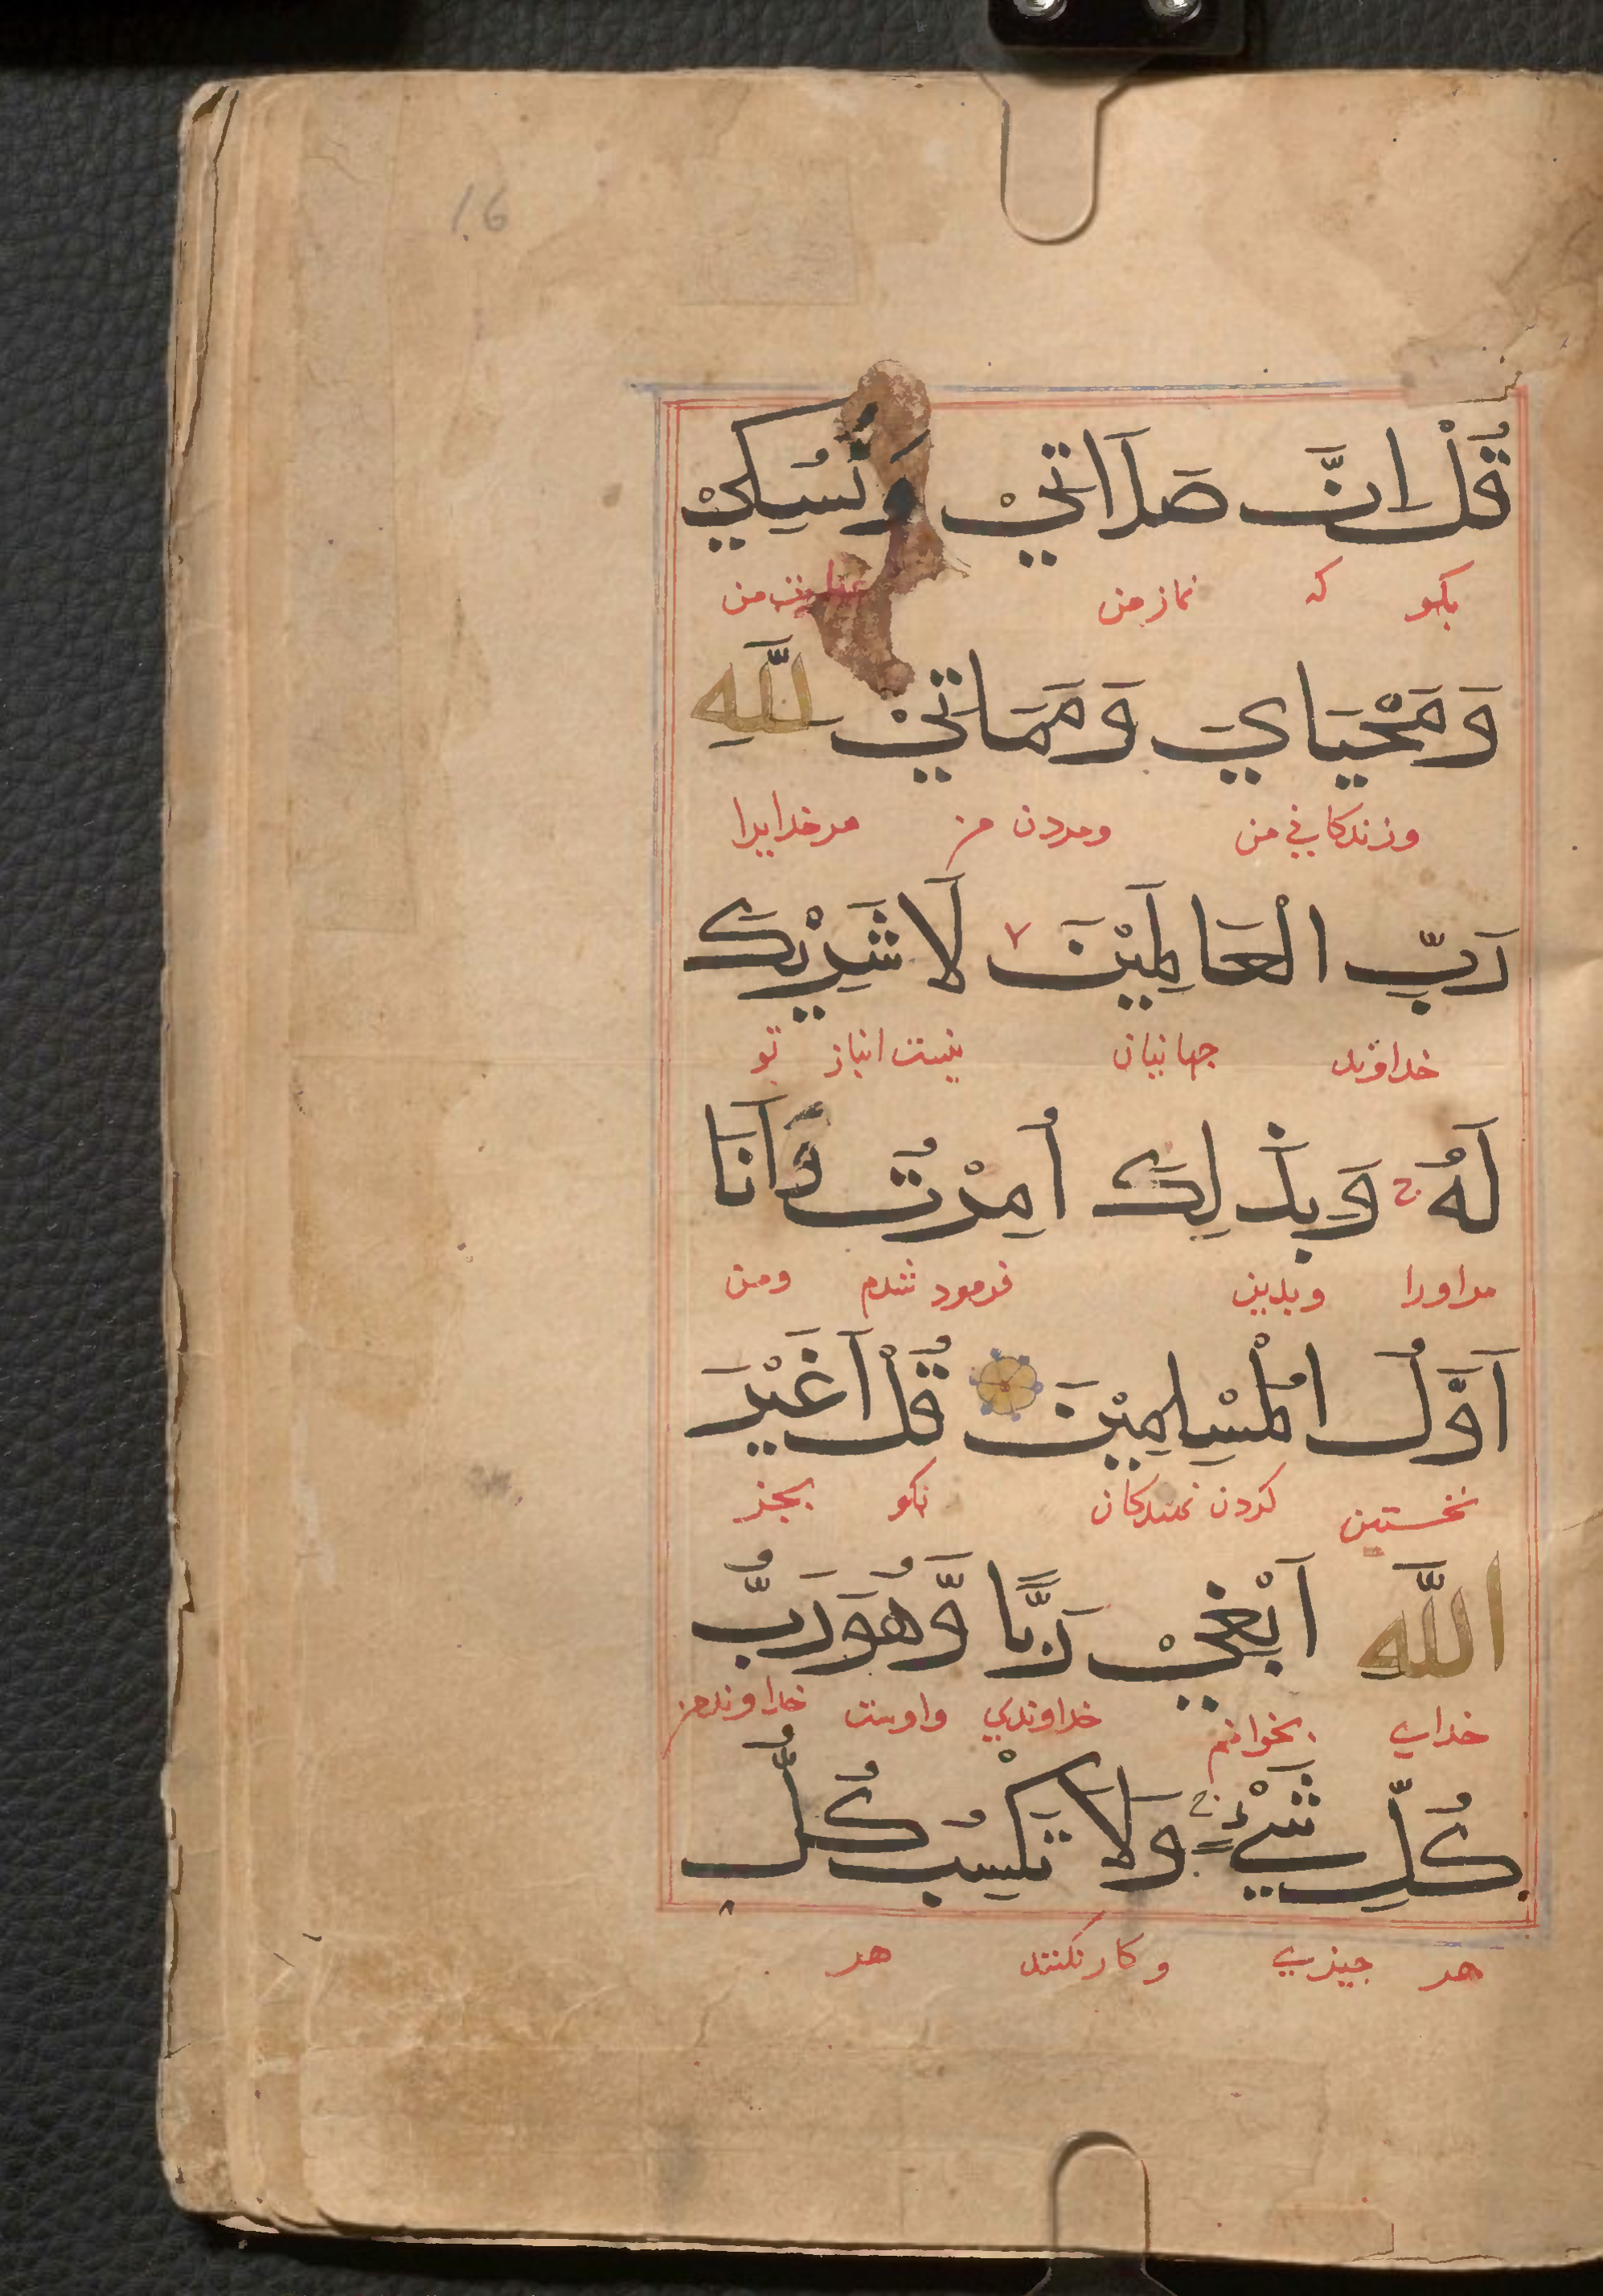 16
قُلْ اِنَّ صَلَاتِيْ وَنُسُكِيْ
بكو كه نماز من من
وَمَحْيَايَ وَمَمَاتِيْ لِلَّهِ
وزندكاني من ومردن من مرخدايرا
رَبِّ الْعَالَمِيْنَ لَا شَرِيْكَ
خداوند جهانيان نيست انباز تو
لَهُ ج وَبِذَلِكَ أُمِرْتُ وَاَنَا
مراورا وبدين فرمود شدم ومن
اَوَّلُ الْمُسْلِمِيْنَ قُلْ اَغَيْرَ
نخستين كردن نهندكان بكو بجز
اللَّهِ اَبْغِيْ رَبًّا وَّهُوَ رَبُّ
خداي بخوانم خداوندي واوست خداوند من
كُلِّ شَيْءٍ ج وَلَا تَكْسِبُ كُلُّ
هر جيزي وكار نكنند هر